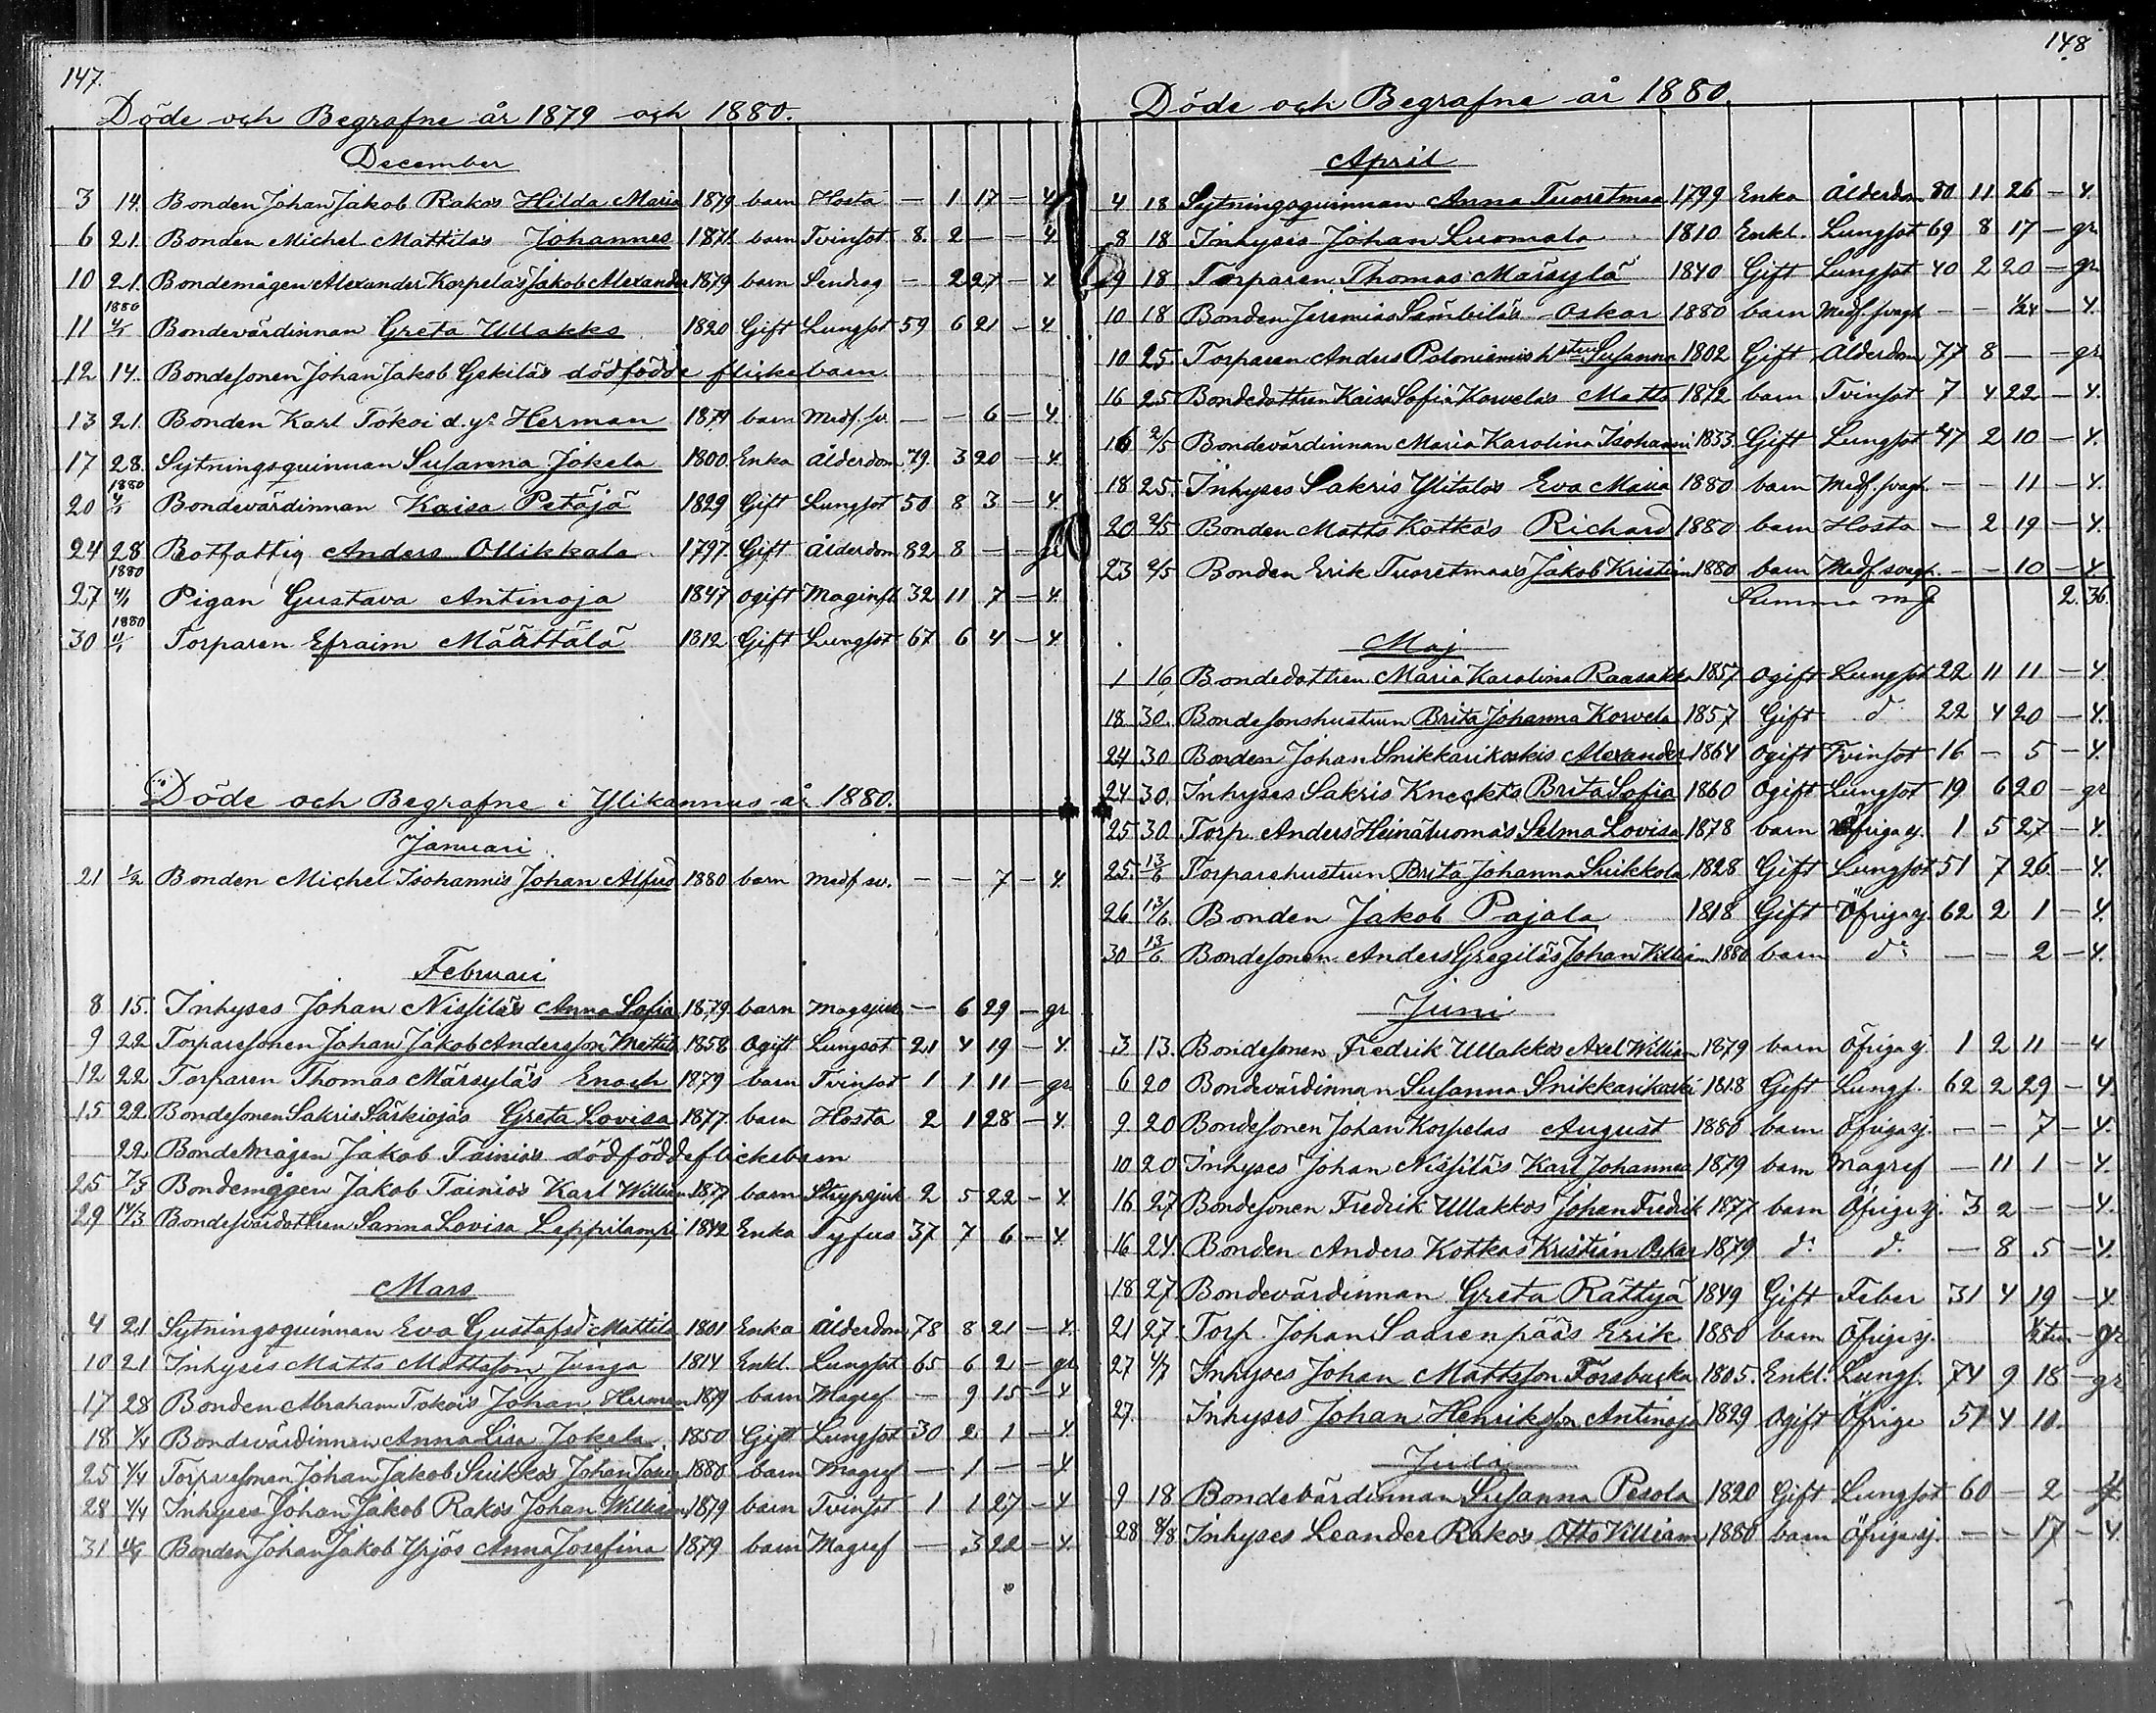 147.
Döde och Begrafne år 1879 och 1880.
December
3 14. Bonden Johan Jakob Rakos Hilda Maria 1879 barn Hosta — 1 17 — 4
6 21. Bonden Michel Mattilas Johannes 1871 barn Tvinsot 8. 2 — — 4
10 21. Bondemågen Alexander Korpelas Jakob Alexander 1879 barn Sendrag — 2 27 — 4
1880
11 4/1 Bondevärdinnan Greta Ullakko 1820 Gift Lungsot 59 6 21 — 4
12 14. Bondesonen Johan Jakob Gekiläs dödfödde flickebarn
13 21. Bonden Karl Tokoi d.y:s Herman 1879 barn Medf. sv. — — 6 — 4.
17 28. Sytningsquinnan Susanna Jokela 1800. Enka Ålderdom 79. 3 20 — 4.
1880
20 4/1 Bondevärdinnan Kaisa Petäjä 1829 Gift Lungsot 50 8 3 — 4.
24 28 Rotfattig Anders Ollikkala 1797. Gift Ålderdom 82 8 — — gr
1880
27 4/1 Pigan Gustava Antinoja 1847 ogift Maginfl 32 11 7 — 4.
1880
30 11/1 Torparen Efraim Määttälä 1812 Gift Lungsot 67 6 4 — 4
Döde och Begrafne i Ylikannus år 1880.
Januari
21 1/2 Bonden Michel Isohannis Johan Alfred 1880 barn medf. sv. — — 7 — 4.
Februari
8 15. Inhyses Johan Nissiläs Anna Sofia 1879 barn Magsjuk — 6 29 — gr
9 22 Torparesonen Johan Jakob Andersson Mattila 1858 Ogift Lungsot 21 4 19 — 4.
12 22 Torparen Thomas Märsyläs Enoch 1879 barn Tvinsot 1 1 11 — gr.
15 22. Bondesonen Sakris Särkiojas Greta Lovisa 1877. barn Hosta 2 1 28 — 4.
22 Bondemågen Jakob Tainios dödfödde flickebarn
25 7/3 Bondemågen Jakob Tainios Karl William 1877 barn Strypsjuk 2 5 22 — 4.
29 14/3 Bondesvärdottren Sanna Lovisa Leppilampi 1842 Enka Tyfus 37 7 6 — 4.
Mars
4 21 Sytningsquinnan Eva Gustafsd: Mattila 1801 Enka Ålderdom 78 8 21 — 4.
10 21 Inhyses Matts Mattsson Junga 1814 Enkl. Lungsot 65 6 2 — gr
17 28 Bonden Abraham Tokois Johan Herman 1879 barn Magref — 9 15 — 4
18 1/4 Bondevärdinnan Anna Lisa Jokela 1850 Gift Lungsot 30 2 1 — 4.
25 4/4 Torparesonen Johan Jakob Suikkos Johan 1880 barn Magref — 1 — — 4
28 4/4 Inhyses Johan Jakob Rakos Johan William 1879 barn Tvinsot 1 1 27 — 4
31 Bonden Johan Jakob Yrjös Anna Josefina 1879 barn Magref — 3 22 — 4.
148
Döde och Begrafne år 1880.
April
4 18 Sytningsquinnan Anna Tuoretmaa 1799 Enka Ålderdom 80 11 26 — 4.
8 18 Inhyses Johan Luomala 1810 Enkl. Lungsot 69 8 17 — gr.
9 18 Torparen Thomas Märsylä 1840 Gift Lungsot 40 2 20 — gr
10 18 Bonden Jeremias Sämbiläs Oskar 1880 barn Medf. svagh — — 1/24 — 4.
10 25. Torparen Anders Poloniemis hstru Susanna 1802 Gift Ålderdom 77 8 — — gr
16 25 Bondedottren Kaisa Sofia Korvelas Matts 1872 barn Tvinsot 7 4 22 — 4.
16 2/5 Bondevärdinnan Maria Karolina Isohanni 1833. Gift Lungsot 47 2 10 — 4.
18 25. Inhyses Sakris Ylitalos Eva Maria 1880 barn Medf. svagh. — — 11 — 4.
20 2/5 Bonden Matts Kotkas Richard 1880 barn Hosta — 2 19 — 4.
23 2/5 Bonden Erik Tuoretmaas Jakob Kristian 1880 barn Medf. svagh. — — 10 — 4.
Summa 2. 36.
Maj
1 16 Bondedottren Maria Karolina Raasakka 1857 ogift Lungsot 22 11 11 — 4.
18. 30. Bondesonshustrun Brita Johanna Korvela 1857 Gift d:o 22 4 20 — 4.
24 30 Bonden Johan Snikkarikoskis Alexander 1864 ogift Tvinsot 16 — 5 — 4.
24 30. Inhyses Sakris Kneckts Brita Sofia 1860 Ogift Lungsot 19 6 20 — gr
25 30. Torp. Anders Heinätuomas Selma Lovisa 1878 barn Öfriga sj. 1 5 27 — 4.
25 13/6 Torparehustrun Brita Johanna Suikkola 1828 Gift Lungsot 51 7 26 — 4.
26 13/6 Bonden Jakob Pajala 1818 Gift Öfriga sj. 62 2 1 — 4.
30 13/6 Bondesonen Anders Gregiläs Johan Villiam 1880 barn d:o — — 2 — 4.
Juni
3 13. Bondesonen Fredrik Ullakkos Axel William 1879 barn Öfriga sj. 1 2 11 — 4
6 20 Bondevärdinnan Susanna Snikkarikoski 1818 Gift Lungs. 62 2 29 — 4.
9 20 Bondesonen Johan Korpelas August 1880 barn Öfriga sj. — — 7 — 4.
10 20 Inhyses Johan Nissiläs Karl Johannes 1879 barn Magref — 11 1 — 4.
16 27 Bondesonen Fredrik Ullakkos Johan Fredrik 1877 barn Öfriga sj. 3 2 — — 4.
16 24. Bonden Anders Kotkas Kristian Oskar 1879 d:o d:o — 8 5 — 4.
18 27 Bondevärdinnan Greta Rättyä 1849 Gift Feber 31 4 19 — 4.
21 27. Torp. Johan Saarenpääs Erik 1880 barn Öfriga sj. 1/2 tim — gr
27 4/7 Inhyses Johan Mattsson Forsbacka 1805. Enkl. Lungs. 74 9 18 — gr
27. Inhyses Johan Henriksson Antinoja 1829 Ogift Öfriga 51 4 10.
Juli
9 18 Bondevärdinnan Susanna Pesola 1820 Gift Lungsot 60 — 2 —
28 8/8 Inhyses Leander Rakos Otto Villiam 1880 barn Öfriga sj. — — 17 — 4.